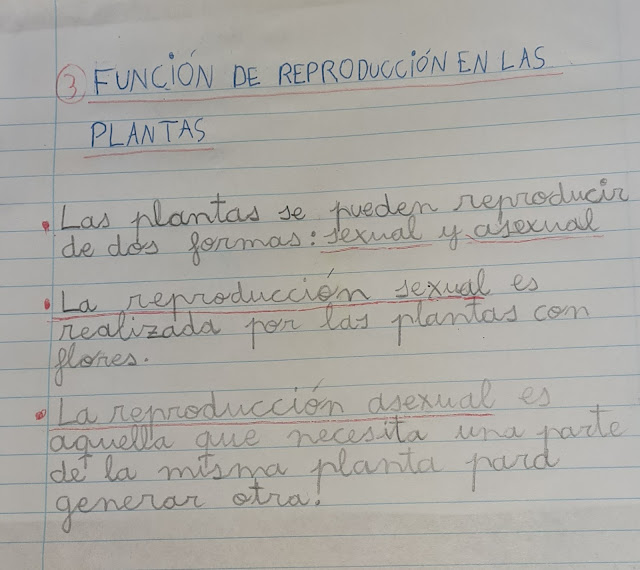 3 FUNCIÓN DE REPRODUCCIÓN EN LAS
PLANTAS
• Las plantas se pueden reproducir
de dos formas: sexual y asexual
• La reproducción sexual es
realizada por las plantas con
flores.
• La reproducción asexual es
aquella que necesita una parte
de la misma planta para
generar otra.